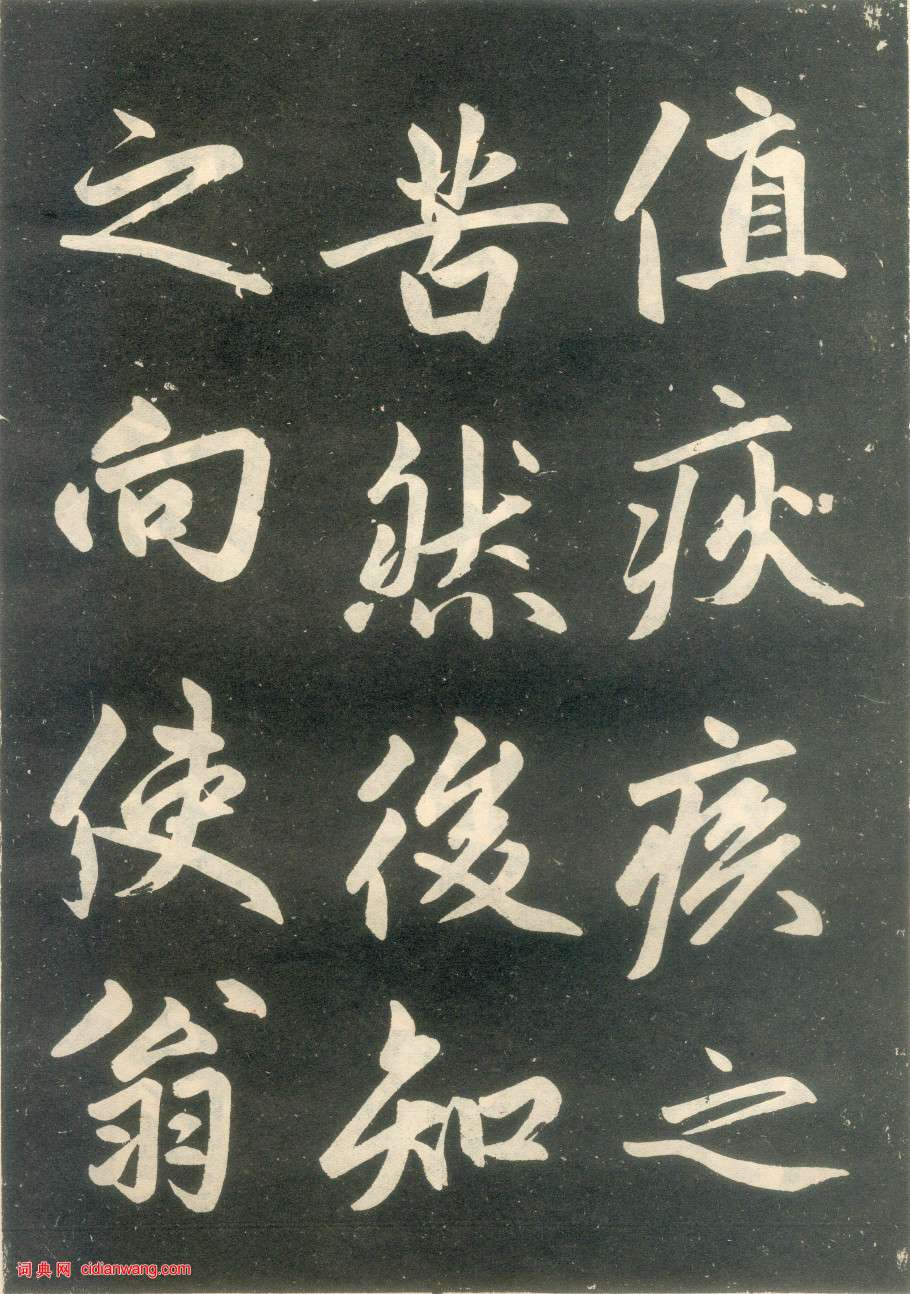 值疢疾之
苦然後知
之向使翁
词典网 cidianwang.com